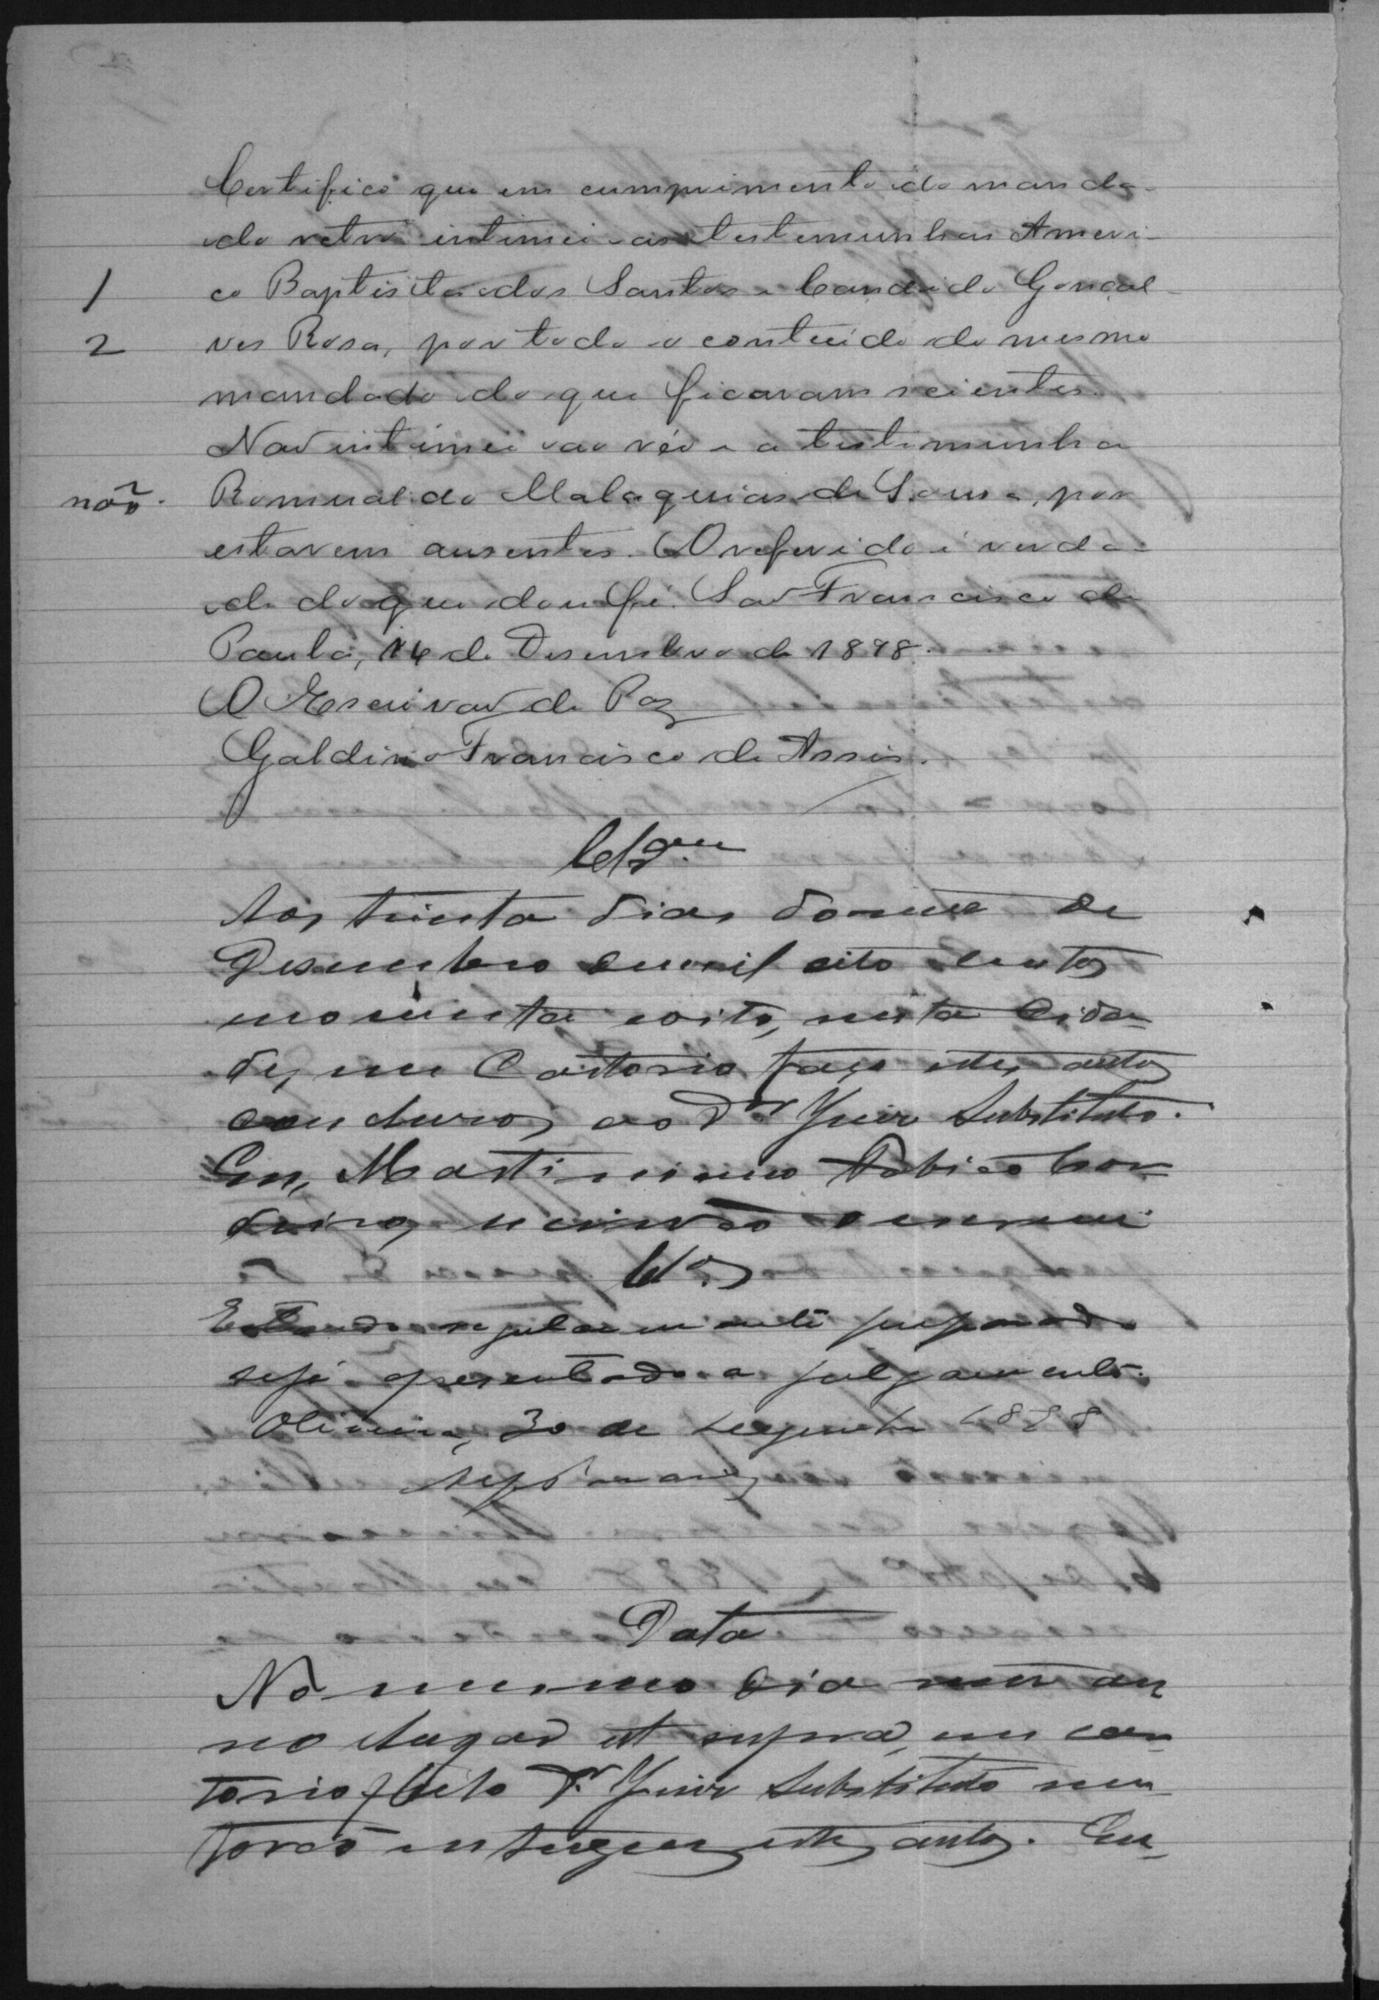 Certifico que em cumprimento do manda-
do retro intimei as testemunhas Ameri-
1 co Baptista dos Santos e Candido Gonçal-
2 ves Rosa, por todo o conteúdo do mesmo
mandado do que ficaram scientes.
Nao intimei ao réo e a testemunha
não. Romualdo Malaquias de Sousa, por
estarem ausentes. O referido é verda-
de do que dou fé. Sao Francisco de
Paula, 14 de Desembro de 1898.
O Escrivao de Paz
Galdino Francisco de Assis.
Clsam
Aos trinta dias do mez de
Desembro de mil oito centos
noventa e oito, nesta Cida-
de, em Cartorio faço estes autos
conclusos ao Dr Juiz Substituto.
Eu, Martiniano Cor-
deiro, escrivão o escrevi
Clos
Estando regularmente preparado
seja apresentado a julgamento.
Oliveira, 30 de Dezembro 1898
Data
No mesmo dia mez an-
no e lugar ut supra, em car-
torio pelo Dr Juiz Substituto me
forão entregues estes autos. Eu,